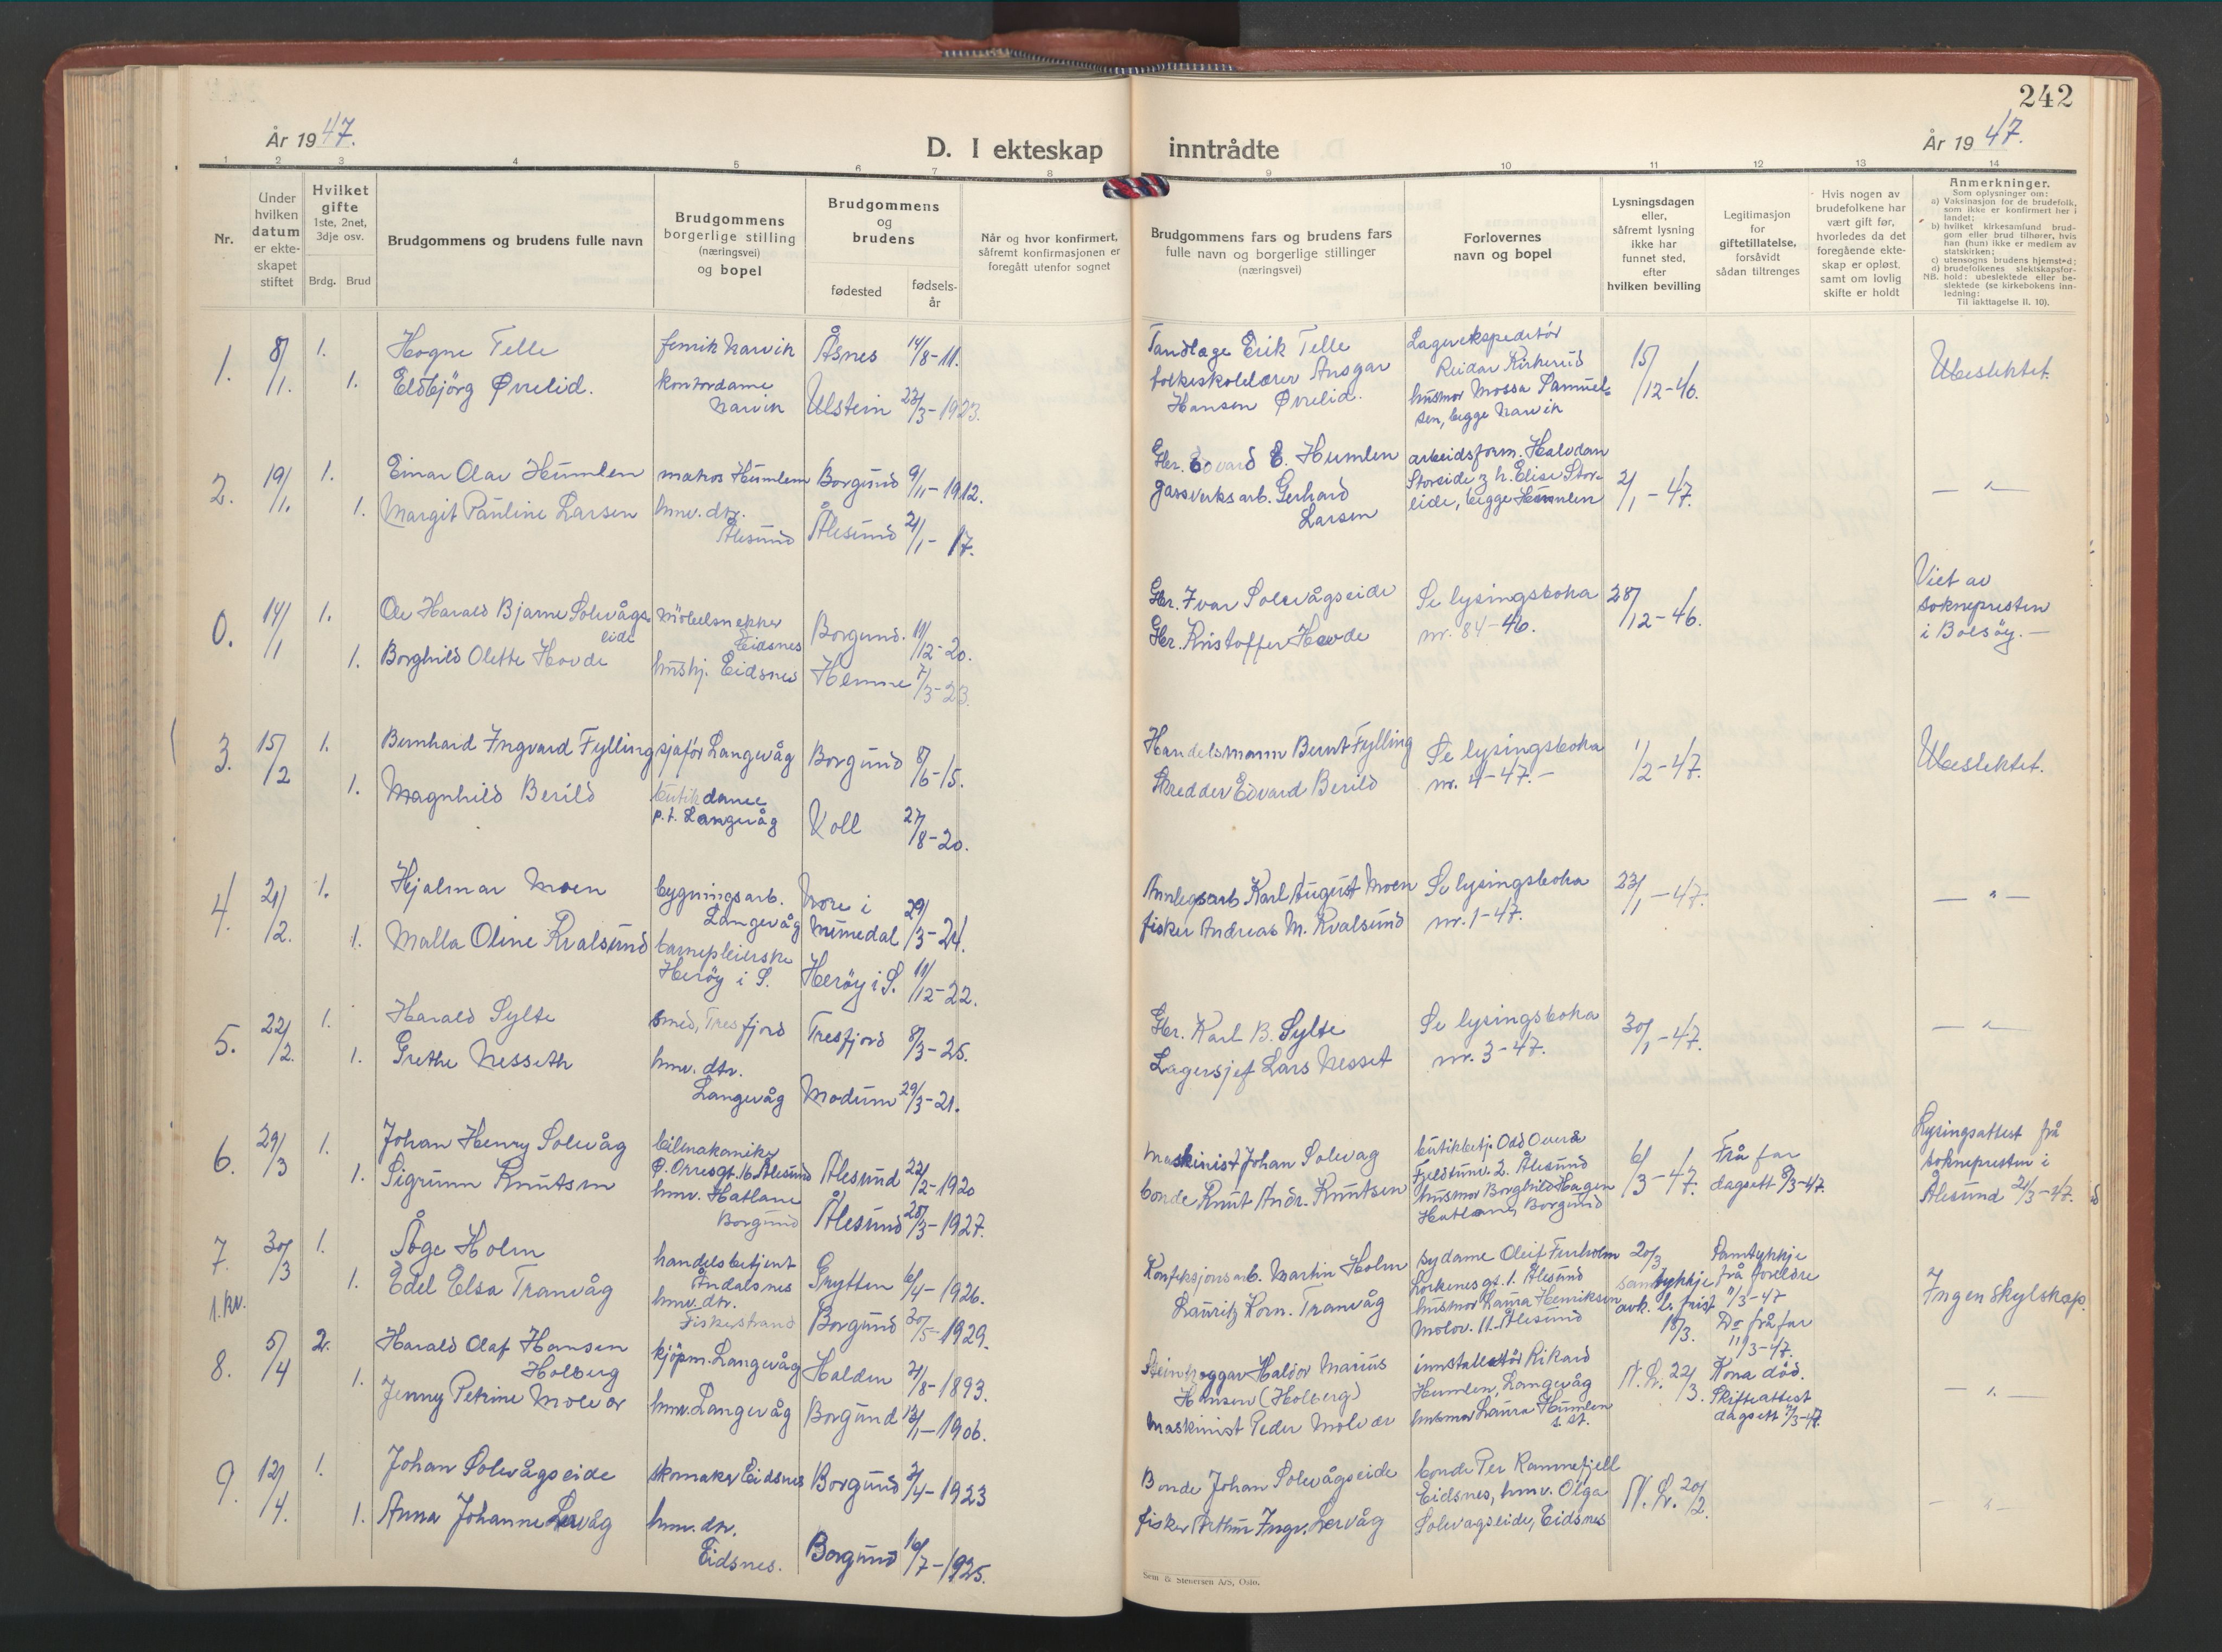 242
År 1947.
D. I ekteskap inntrådte
År 1947.
1 2 3 4 5 6 7 8 9 10 11 12 13 14
Nr.
Under
hvilken
datum
er ekte-
skapet
stiftet
Hvilket
gifte
1ste, 2net,
3dje osv.
Brdg. Brud
Brudgommens og brudens fulle navn
Brudgommens
borgerlige stilling
(næringsvei)
og bopel
Brudgommens
og
brudens
fødested
fødsels-
år
Når og hvor konfirmert,
såfremt konfirmasjonen er
foregått utenfor sognet
Brudgommens fars og brudens fars
fulle navn og borgerlige stillinger
(næringsvei)
Forlovernes
navn og bopel
Lysningsdagen
eller,
såfremt lysning
ikke har
funnet sted,
efter
hvilken bevilling
Legitimasjon
for
giftetillatelse,
forsåvidt
sådan tiltrenges
Hvis nogen av
brudefolkene har
vært gift før,
hvorledes da det
foregående ekte-
skap er opløst,
samt om lovlig
skifte er holdt
Anmerkninger.
Som oplysninger om:
a) Vaksinasjon for de brudefolk,
som ikke er konfirmert her i
landet;
b) hvilket kirkesamfund brud-
gom eller brud tilhører, hvis
han (hun) ikke er medlem av
statskirken;
c) utensogns brudens hjemsted;
d) brudefolkenes slektskapsfor-
NB. hold: ubeslektede eller be-
slektede (se kirkebokens inn-
ledning:
Til iakttagelse II. 10).
1. 8/1. 1. Hogne Telle fenrik Narvik Åsnes 14/8-11.
1. Eldbjörg Øvrelid. kontordame
Narvik Ulstein 23/3-1923.
Tandlæge Erik Telle
folkeskolelærer Ansgar
Hansen Øvrelid.
Lagerekspeditör
Reidar Kirkerud
husmor Mossa Samuel-
sen, begge Narvik
15/12-46.
Ubeslektet.
2. 19/1. 1. Einar Olav Humlen matros Humlem Borgund 9/11-1912.
1. Margit Pauline Larsen hmv. dtr.
Ålesund Ålesund 21/1-17.
Gbr. Edvard E. Humlen
gassverksarb. Gerhard
Larsen
arbeidsform. Halvdan
Storeide z h. Elise Stor-
eide, begge Humlen
2/1-47.
— " —
0. 14/1 1. Ole Harald Bjarne Solevågs-
eide möbelsnekker
Eidsnes Borgund. 11/12-20.
1. Borghild Olette Hovde hushj. Eidsnes Hemne 7/3-23.
Gbr. Ivar Solevågseide
Gbr. Kristoffer Hovde
Se lysingsboka
nr. 84-46.
28/12-46.
Viet av
soknepresten
i Bolsöy. —
3. 15/2 1. Bernhard Ingvard Fylling sjaför Langevåg Borgund 8/6-15.
1. Magnhild Berild butikdame
p.t. Langevåg Voll 27/8-20.
Handelsmann Bernt Fylling
Skredder Edvard Berild
Se lysingsboka
nr. 4-47. —
1/2-47.
Ubeslektet.
4. 21/2. 1. Hjalmar Moen bygningsarb.
Langevåg Nore i
Numedal 29/3-24.
1. Malla Oline Kvalsund barnepleierske
Heröy i S. Heröy i S. 11/12-22.
Annlegsarb Karl August Moen
fisker Andreas M. Kvalsund
Se lysingsboka
nr. 1-47.
23/1-47.
— " —
5. 22/2. 1. Harald Sylte smed, Tresfjord Tresfjord 8/3-25.
1. Grethe Nesseth hmv. dtr.
Langevåg Modum 29/3-21.
Gbr. Karl B. Sylte
Lagersjef Lars Nesset
Se lysingsboka
nr. 3-47.
30/1-47.
— " —
6. 29/3 1. Johan Henry Solevåg bilmekaniker
Ö. Orresgt. 16 Ålesund Ålesund 22/2-1920
1. Sigrunn Knutsen hmv. Hatlane
Borgund Ålesund 28/3-1927.
Maskinist Johan Solevag
bonde Knut Andr. Knutsen
butikbetj. Odd Overå
Fjeldtunv. 2. Ålesund
husmor Borghild Hagen
Hatlane, Borgund
6/3-47.
Frå far
dagsett 8/3-47.
Lysingsattest frå
soknepresten i
Ålesund 21/3-47.
7. 30/3 1. Åge Holm handelsbetjent
Åndalsnes Grytten 6/4-1926.
1.kv. 1. Edel Elsa Tranvåg hmv. dtr.
Fiskerstrand Borgund 30/5-1929.
Konfeksjonsarb. Martin Holm
Lauritz Korn. Tranvåg
sydame Oleif Furholm
Lorkenesgt. 1. Ålesund
husmor Laura Henriksen
Molov. 11. Ålesund
20/3
samtykkje
avk. l. frist
18/3.
Samtykkje
frå foreldre
11/3-47
Do frå far
11/3-47.
Ingen Skylskap.
8. 5/4 2. Harald Olaf Hansen
Holberg kjöpm. Langevåg Halden 21/8-1893.
1. Jenny Petrine Molvær hmv. Langevåg Borgund 13/1-1906.
Steinhoggar Haldor Marius
Hansen (Holberg)
Maskinist Peder Molvær
innstallatör Rikard
Humlen, Langevåg
husmor Laura Humlen
s. st.
N. L. 22/3.
Kona död.
Skifteattest
dagsett 11/3-47.
— " —
9. 12/4. 1. Johan Solevågseide skomaker Eidsnes Borgund 2/4-1923
1. Anna Johanne Lervåg hmv. dtr.
Eidsnes. Borgund 16/7-1925.
Bonde Johan Solevågseide
fisker Arthur Ingv. Lervåg
bonde Per Rammefjell
Eidsnes, hmv. Olga
Solevagseide, Eidsnes
N. L. 20/2.
— " —
Sem & Stenersen A/S, Oslo.